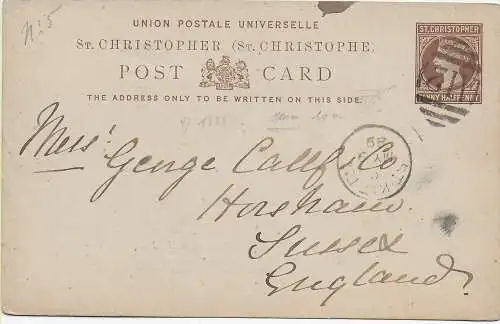 No: 5
UNION POSTALE UNIVERSELLE
ST. CHRISTOPHER (ST. CHRISTOPHE.
POST CARD
THE ADDRESS ONLY TO BE WRITTEN ON THIS SIDE.
ST. CHRISTOPHER
PENNY HALFPENNY
Messrs George
Horsham
Sussex
England